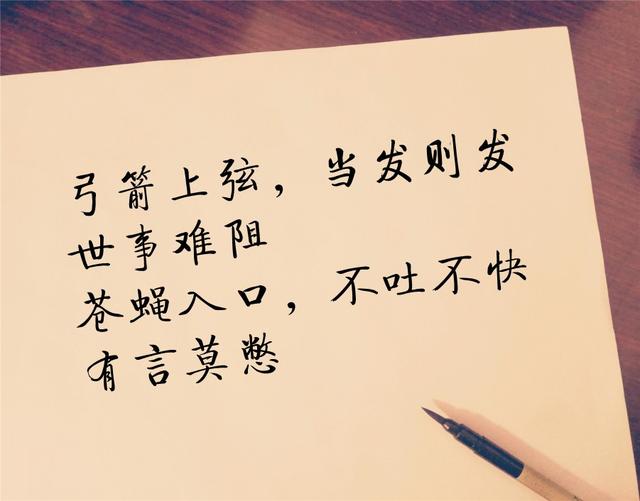 弓箭上弦，当发则发
世事难阻
苍蝇入口，不吐不快
有言莫憋